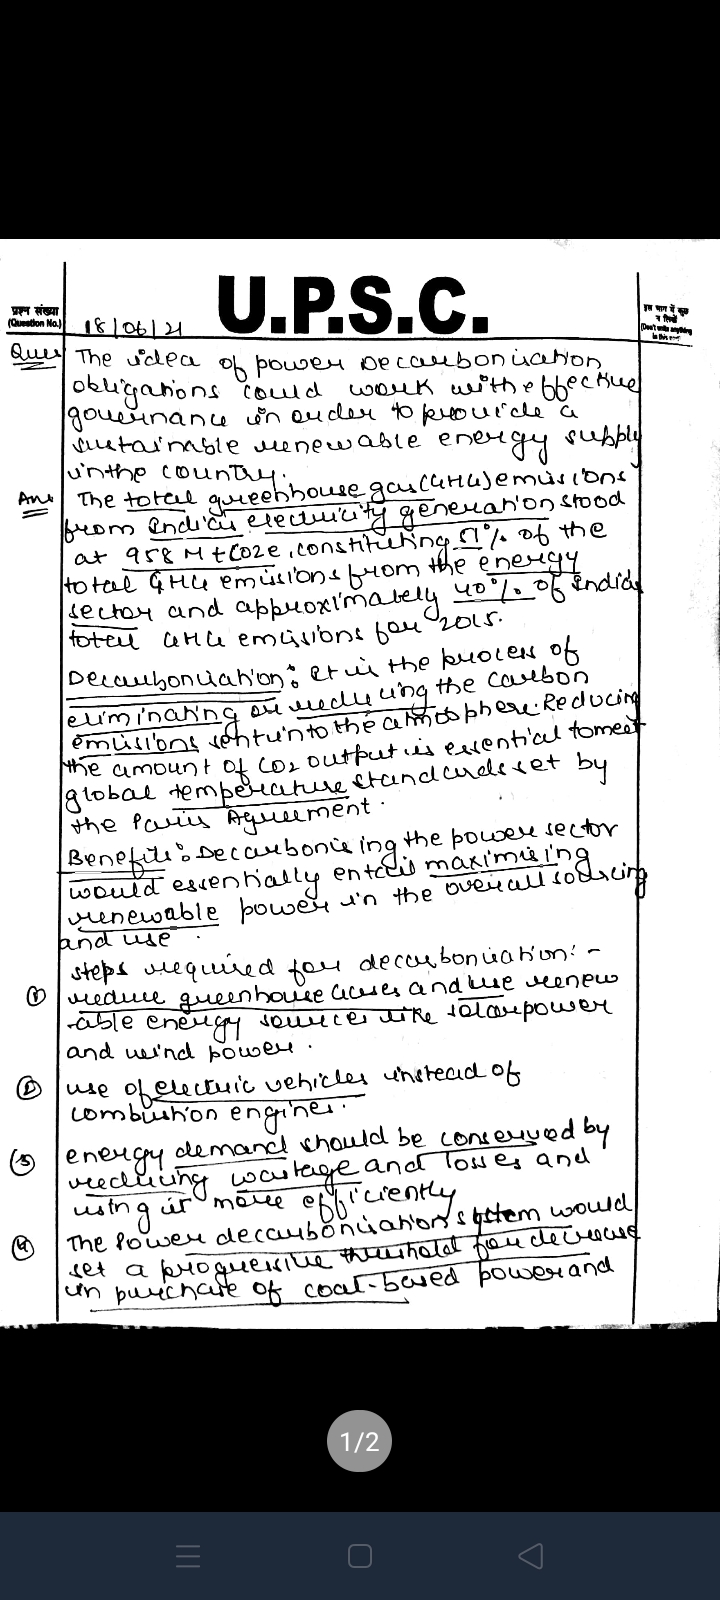 U.P.S.C.
प्रश्न संख्या
(Question No.)
18/06/21
इस भाग में कुछ
न लिखें
(Don't write anything
in this part)
Ques The idea of power Decarbonisation
obligations could work with effective
governance in order to provide a
sustainable renewable energy supply
in the country.
Ans The total greenhouse gas (GHG) emissions
from India's electricity generation stood
at 958 MtCO2e, constituting 51% of the
total GHG emissions from the energy
sector and approximately 40% of India
total GHG emissions for 2015.
Decarbonisation: It is the process of
eliminating or reducing the carbon
emissions sent into the atmosphere. Reducing
the amount of CO2 output is essential to meet
global temperature standards set by
the Paris Agreement.
Benefits: Decarbonising the power sector
would essentially entail maximising
renewable power in the overall sourcing
and use.
steps required for decarbonisation:-
① reduce greenhouse Gases and use renew
-able energy sources like solar power
and wind power.
② use of electric vehicles instead of
combustion engines.
③ energy demand should be conserved by
reducing wastage and losses and
using it more efficiently
④ The Power decarbonisation system would
set a progressive threshold for decrease
in purchase of coal-based power and
1/2